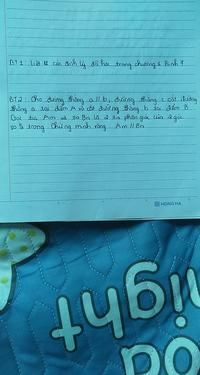 BT1: Liệt kê các định lý đã học trong chương 3 hình 7
BT2: Cho đường thẳng a // b, đường thẳng c cắt đường
thẳng a tại điểm A và cắt đường thẳng b tại điểm B
Gọi tia Am và tia Bn là 2 tia phân giác của 2 góc
so le trong. Chứng minh rằng Am // Bn
HONG HA
night